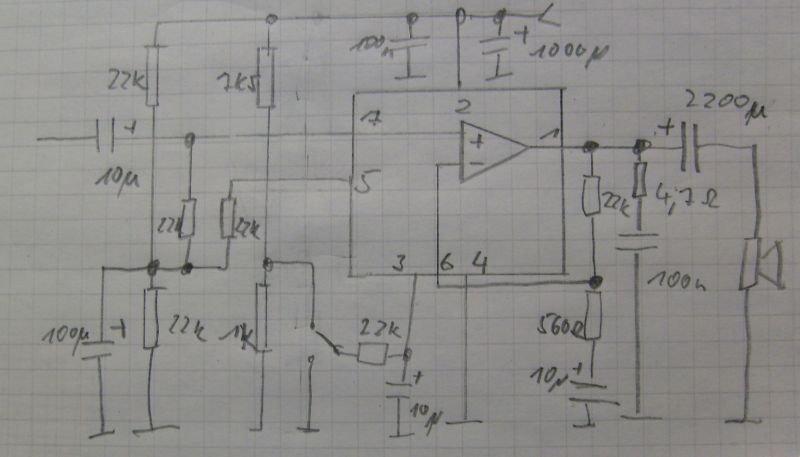 100n
+
1000µ
22k
7k5
2
2200µ
7
1
+
+
+
-
10µ
5
22k
22k
22k
4,7Ω
3
6
4
100n
100µ
+
22k
1k
22k
560Ω
+
10µ
10µ
+